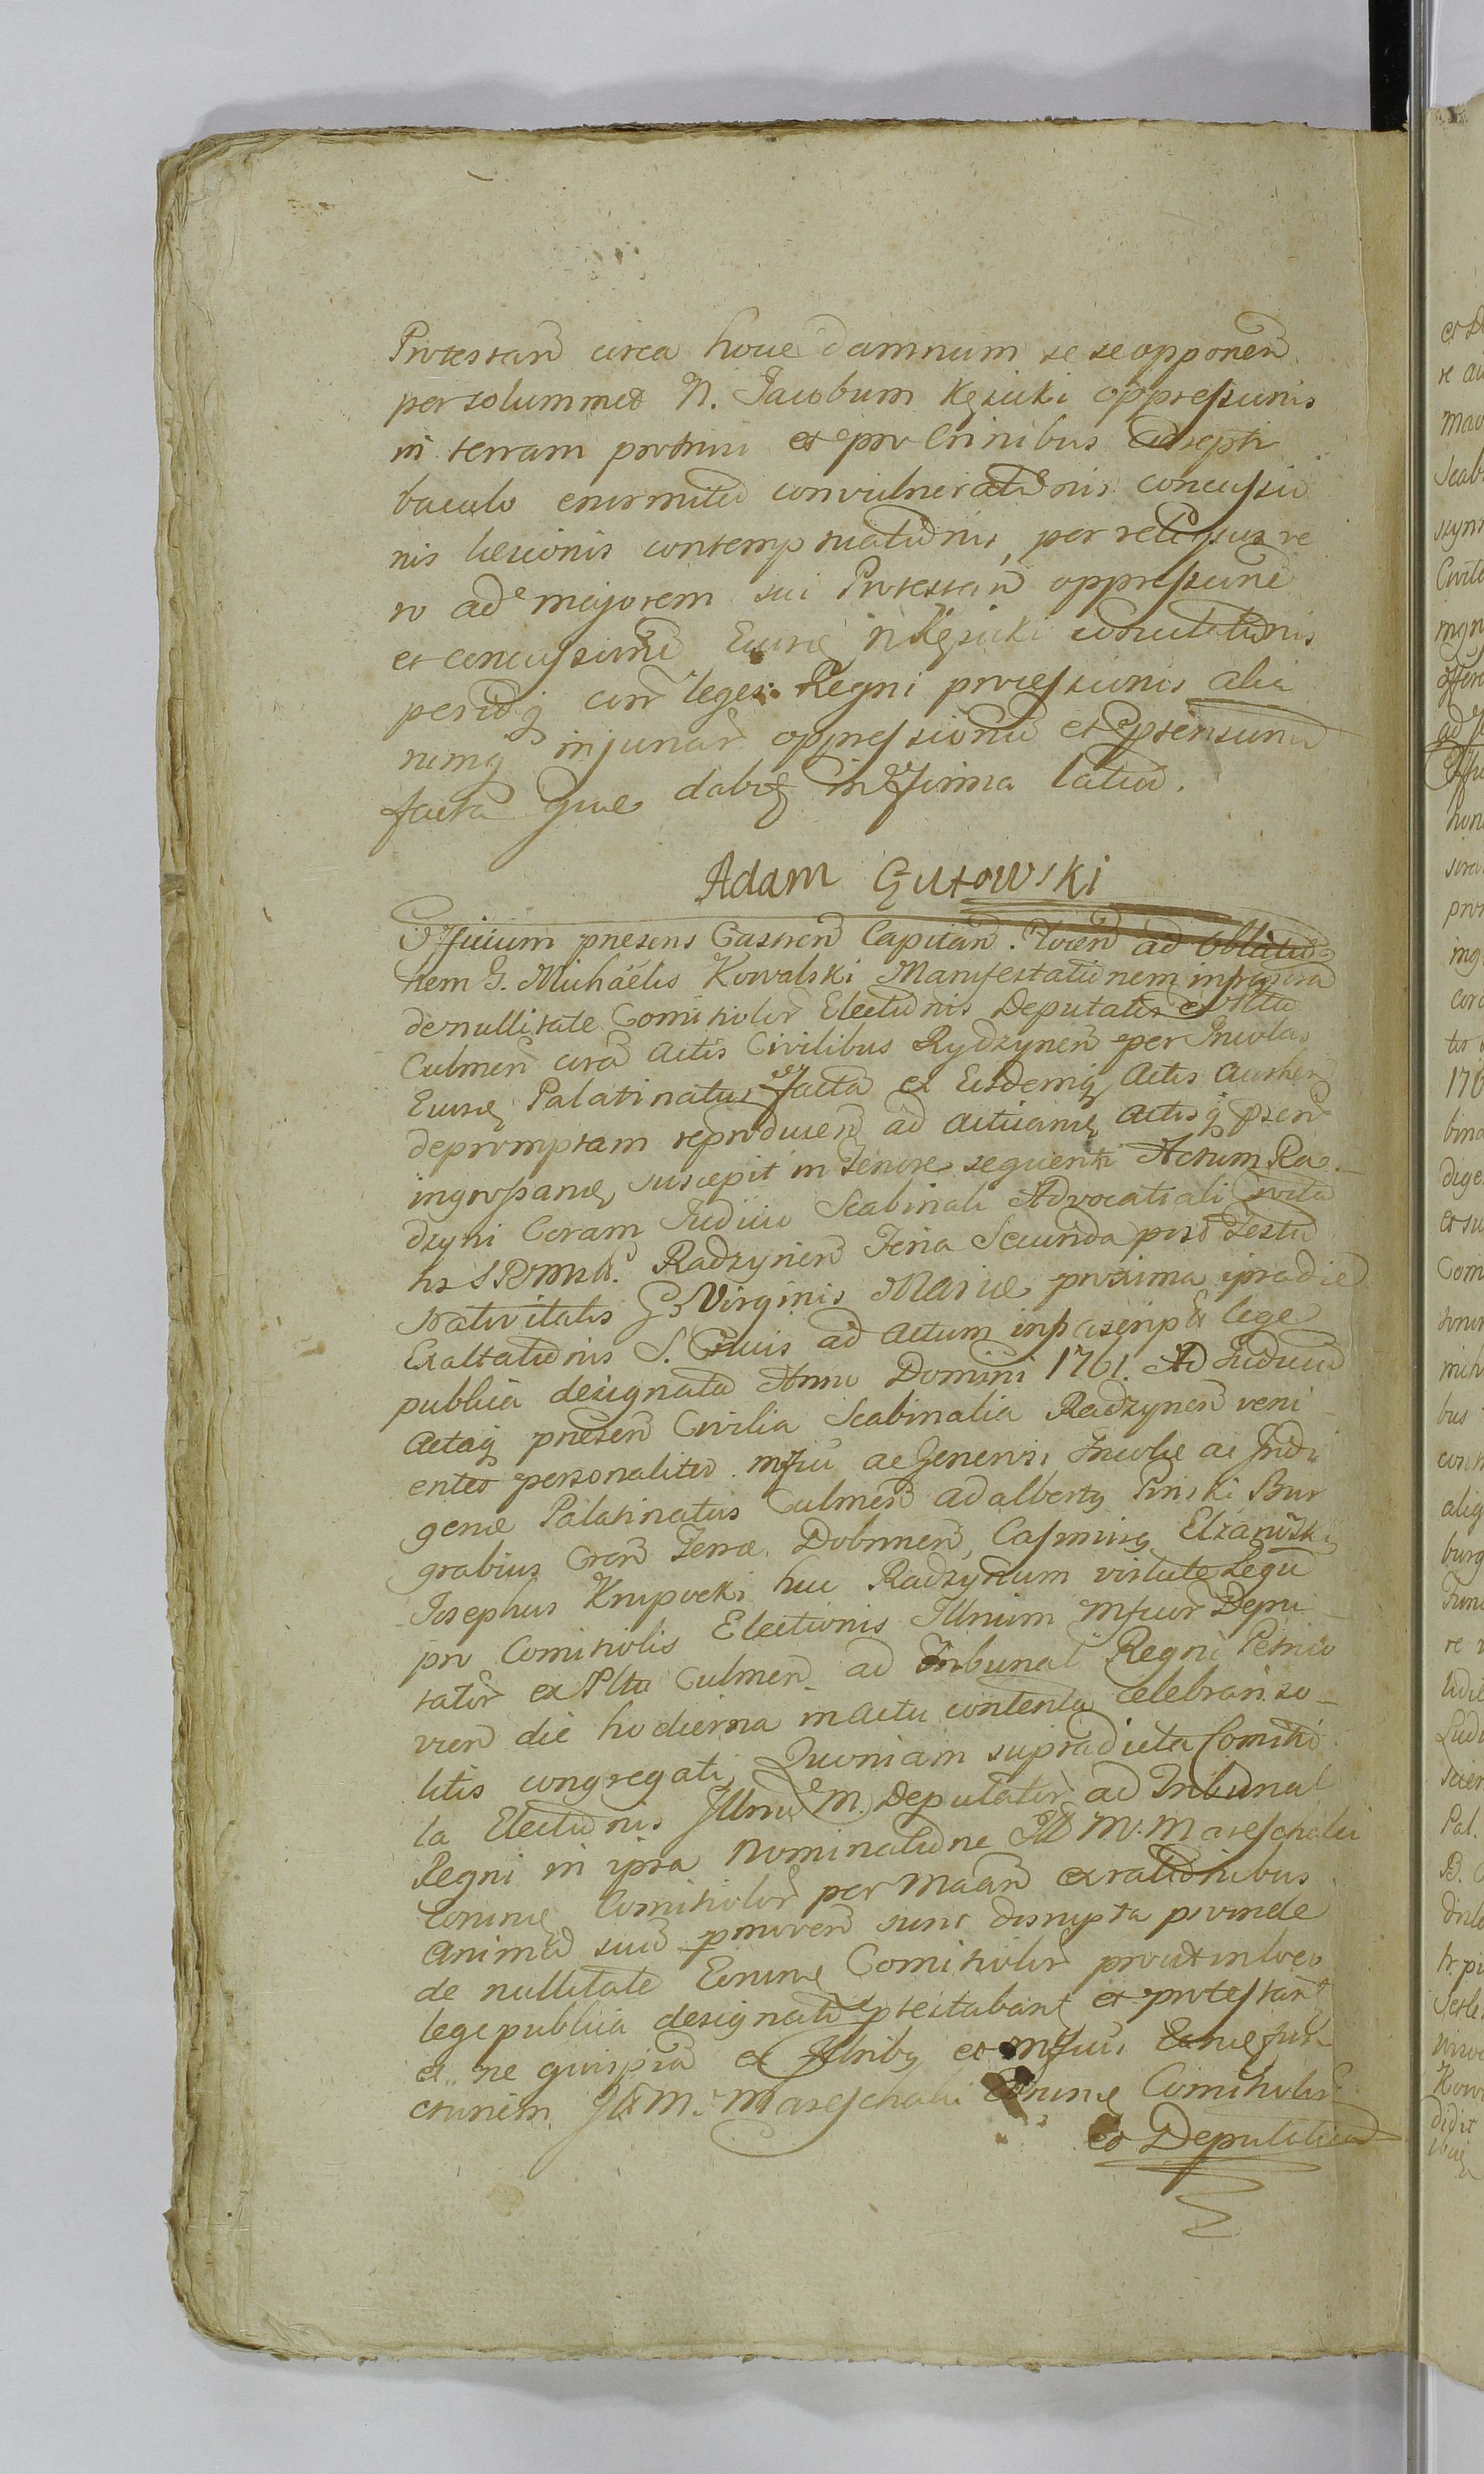 Protestan circa houe damnum se se opponen
per solummet N. Jacobum Kęsicki oppressionis
in terram et pro Crinibus
baculo enormiter convulnerationis concussio
nis lesionis contemp tuationis, per reliquos ve
ro ad majorem sui Protestan oppressione
et concussione Eiusq N Kęsicki
leges Regni processionis alia
rumq injuriar oppressionu et
facta que dabq in Firma latius.
Adam Gutowski
Officium presens Castren Capitan. ad Oblatio
nem G. Michaelis Kowalski Manifestationem infrascra
de nullitate Comitiolor Electionis Deputator ex Pltu
Culmen cora Actis Civilibus Rydzynen per Incolas
Eiusq Palatinatus facta ex Eisdemq Actis authen
depromptam reproducen ad acticanq Actisq psen
ingrossanq suscepit in Tenore sequenti Actum Ra
dzyni Coram Judicio Scabinali Advocatiali Civita
tis S R Mttis Radzynien Feria Secunda post Festu
Nativitatis B Virginis Mariæ proxima ipsa die
Exaltationis S. Crucis ad Actum infrascriptu lege
publica designata Anno Domini 1761. Ad Judicia
Actaq presen Civilia Scabinalia Radzynen veni
entes personaliter mfici ac Generosi Incolæ ac Indi
genæ Palatinatus Culmen Adalbertq Pinski Bur
grabius Terræ Dobrinen, Casimirq Elzanowski
Josephus Krupocki huc Radzynum virtute Legu
pro Comitiolis Electionis Illrium mficor Depu
tator ex Pltu Culmen ad Tribunal Regni Petrico
vien die hodierna in Actu contenta celebrari so
litis congregati, Quoniam supradicta Comitio
la Electionis Illriu M. Deputator ad Tribunal
Regni in ipsa Nominatione Ill M. Mareschalci
Eorunq Comitiolor per ex rationibus
Animu suu promoven sunt disrupta proinde
de nullitate Eorunq Comitiolor prout in loco
lege publica designato et protestant
et ne quispia ex Illribq et mficis
ctionem Ill M. Mareschalci Eorunq Comitiolor
et Deputation